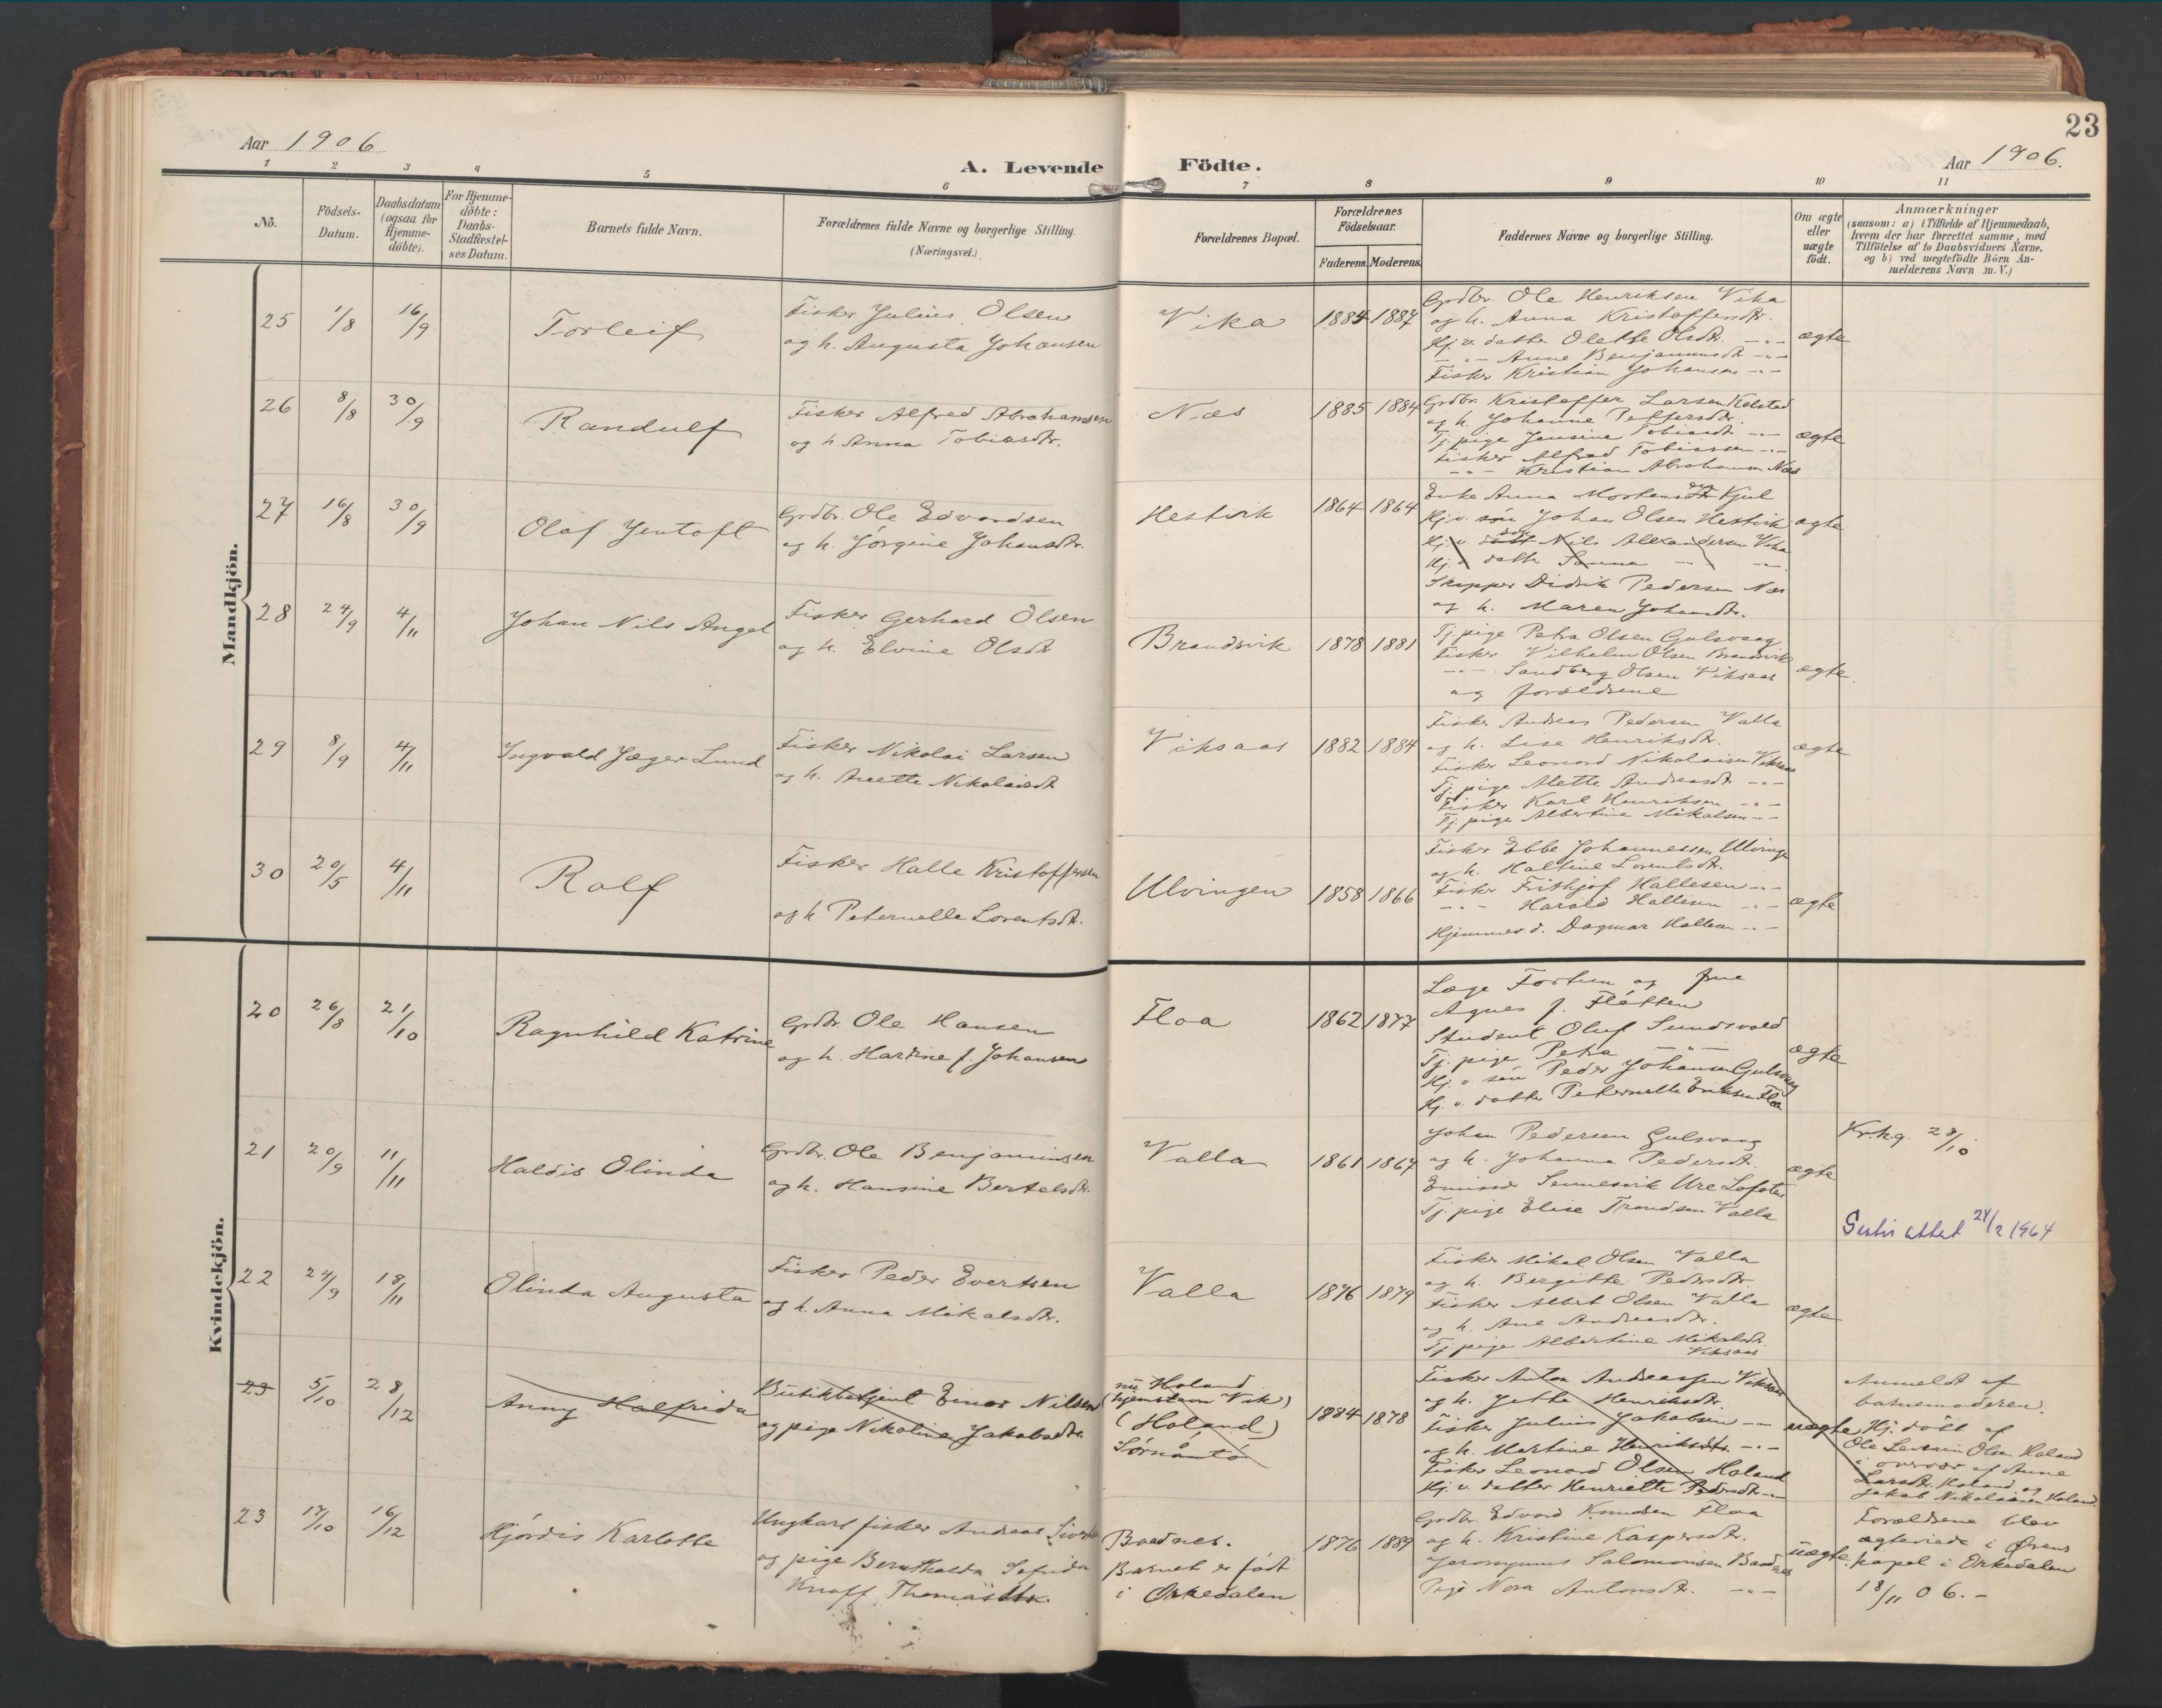 23
Aar 1906
A. Levende Födte.
Aar 1906.
1 2 3 4 5 6 7 8 9 10 11
No.
Födsels-
Datum.
Daabsdatum
(ogsaa for
Hjemme-
döbte).
For Hjemme-
döbte:
Daabs-
Stadfæstel-
ses Datum.
Barnets fulde Navn.
Forældrenes fulde Navne og borgerlige Stilling.
(Næringsvei.)
Forældrenes Bopæl.
Forældrenes
Födselsaar.
Faderens. Moderens.
Faddernes Navne og borgerlige Stilling.
Om ægte
eller
uægte
födt.
Anmærkninger
(saasom: a) i Tilfælde af Hjemmedaab,
hvem der har forrettet samme, med
Tilföielse af to Daabsvidners Navne.
og b) ved uægtefödte Börn An-
melderens Navn m. V.)
Mandkjön.
25 1/8 16/9 Torleif
Fisker Julius Olsen
og h. Augusta Johansen
Vika 1884 1887
Grdbr. Ole Henriksen Vika
og h. Anna Kristoffersdtr.
Hj. v. datter Olette Olsdtr. -"-
-"- Anne Benjaminsdtr -"-
Fisker Kristian Johansen -"-
ægte
26 8/8 30/9 Randulf
Fisker Alfred Abrahamsen
og h. Anna Tobiasdtr.
Næs 1885 1884
Grdbr. Kristoffer Larsen Kolstad
og h. Johanne Pettersdtr.
Tj. pige Jensine Tobiasdtr -"-
Fisker Alfred Tobiassen -"-
-"- Kristian Abrahamsen Næs
ægte
27 16/8 30/9 Olaf Jentoft
Grdbr. Ole Edvardsen
og h. Jörgine Johansdtr.
Hestvik 1864 1864
Enke Anna Mortensdtr Kjul
Hj. v. sön Johan Olsen Hestvik
Hj. v. Nils Alexandersen Vika
Hj. v. datter Sanna -"- -"-
Skipper Didrik Pedersen Næs
og h. Maren Johansdtr.
ægte
28 24/9 4/11 Johan Nils Angel
Fisker Gerhard Olsen
og h. Elvine Olsdtr
Brandsvik 1878 1881
Tj. pige Petra Olsen Gulsvaag
Fisker Vilhelm Olsen Brandsvik
-"- Sandberg Olsen Viksaas
og forældrene
ægte.
29 8/9 4/11 Ingvald Jæger Lund
Fisker Nikolai Larsen
og h. Anette Nikolaisdtr
Viksaas 1882 1884
Fisker Andreas Pedersen Valla
og h. Lise Henriksdtr.
Fisker Leonard Nikolaisen Viksaas
Tj. pige Mette Andreasdtr -"-
Fisker Karl Henriksen -"-
Tj. pige Albertine Mikalsen -"-
ægte
30 20/5 4/11 Rolf
Fisker Halle Kristoffersen
og h Peternelle Lorentsdtr.
Ulvingen 1858 1866
Fisker Ebbe Johannessen Ulvingen
og h. Haltine Lorentsdtr.
Fisker Frithjof Hallesen -"-
-"- Harald Hallesen -"-
Hjemmev. d. Dagmar Hallesen -"-
ægte
Kvindekjön.
20 26/8 21/10 Ragnhild Katrine
Grdbr. Ole Hansen
og h. Hardine f. Johansen
Floa 1862 1877
Læge Fortun og frue
Agnes f. Flåtten
Student Oluf Sundsvold
Tj. pige Petra -"-
Hj. v. sön Peder Johansen Gulsvaag
Hj. v. datter Peternelle Eriksen Floa
ægte
21 20/9 11/11 Haldis Olinda
Grdbr. Ole Benjaminsen
og h. Hansine Bertelsdtr.
Valla 1861 1867
Johan Pedersen Gulsvaag
og h. Johanna Pedersdtr.
Emissær Sennesvik Ure Lofoten
Tj. pige Elise Trondsen Valla
ægte
Kr.h.g. 28/10
attest 24/2 1964
22 24/9 18/11 Olinda Augusta
Fisker Peder Evertsen
og h. Anna Mikalsdtr.
Valla 1876 1879
Fisker Mikal Olsen Valla
og h. Bergitte Pedersdtr.
Fisker Albert Olsen Valla
og h. Ane Andreasdtr.
Tj. pige Albertine Mikalsdtr.
Viksaas
ægte
23 5/10 28/12 Anny Halfrida
Butikbetjent Einar Nilsen
og pige Nikoline Jakobsdtr.
nu Holand
(hjemstavn Vik)
(Holand)
1884 1878
Fisker Anton Andreassen Viksaas
og h. Jette Henriksdtr.
Fisker Julius Jakobsen -"-
og h. Martine Henriksdtr. -"-
Fisker Leonard Olsen Holand
Hj. v. datter Henriette Pedersdtr -"-
uægte
Anmeldt af
barnemoderen.
Hj. döbt af
Ole Severin Olsen Holand
i overvær af Anne
Larsdtr. Holand og
Jakob Nikolaisen Holand
23 17/10 16/12 Hjördis Karlotte
Ungkarl fisker Andreas
og pige Bernthalda Sofrida
Knoff Thomasdtr.
Baadnes.
Barnet er födt
i Orkedalen
1876 1889
Grdbr. Edvard Knudsen Floa
og h. Kristine Kaspersdtr.
Jeronymus Salomonsen Baadnes
Pige Nora Antonsdtr. -"-
uægte.
Forældrene blev
ægteviede i
kapel i Orkedalen
18/11 06.-